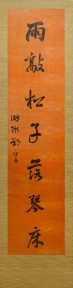 雨敲松子落琴床